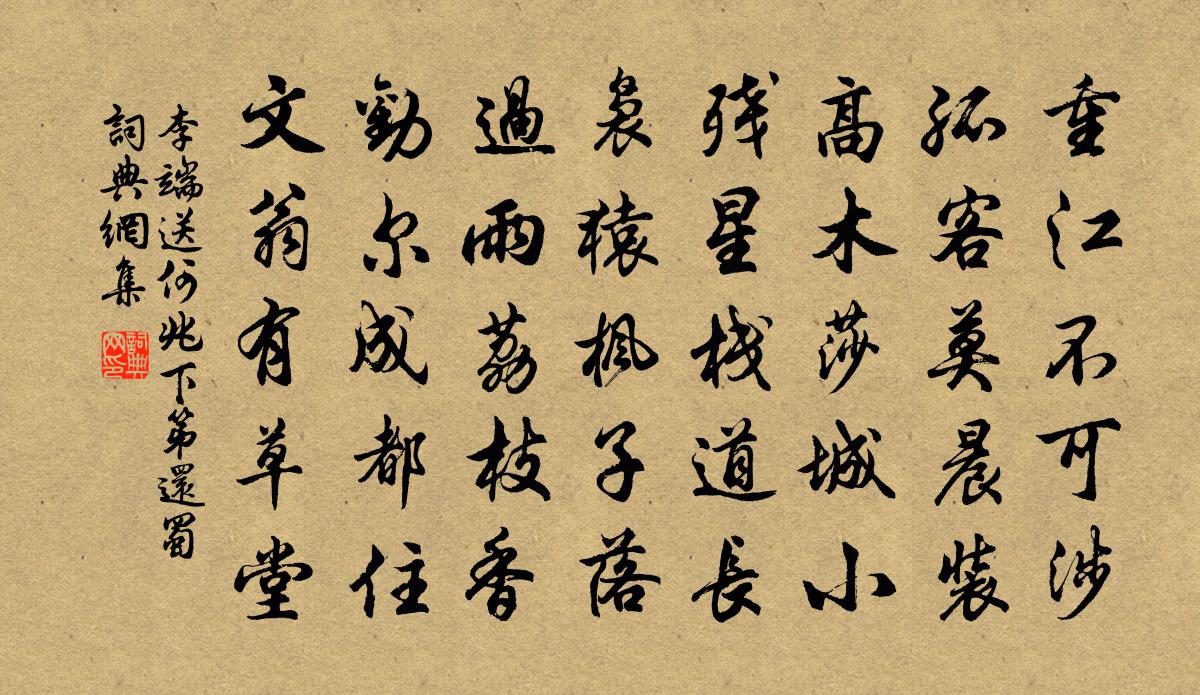 重江不可涉
孤客莫晨裝
高木莎城小
残星栈道長
裊猿楓子落
過雨荔枝香
勸尔成都住
文翁有草堂
李端送何兆下第還蜀
詞典網集
詞典網印